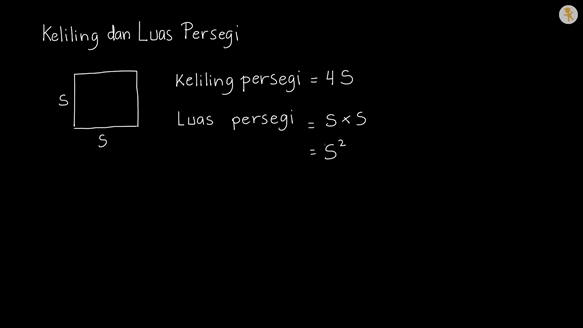 Keliling dan Luas Persegi
Keliling persegi = 4 S
S
Luas persegi = S × S
S
= S²